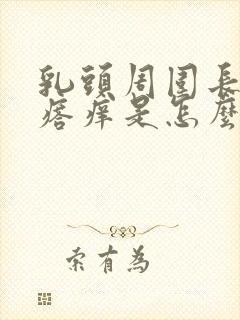 乳頭周圍長
痞痒是怎麼
索有為